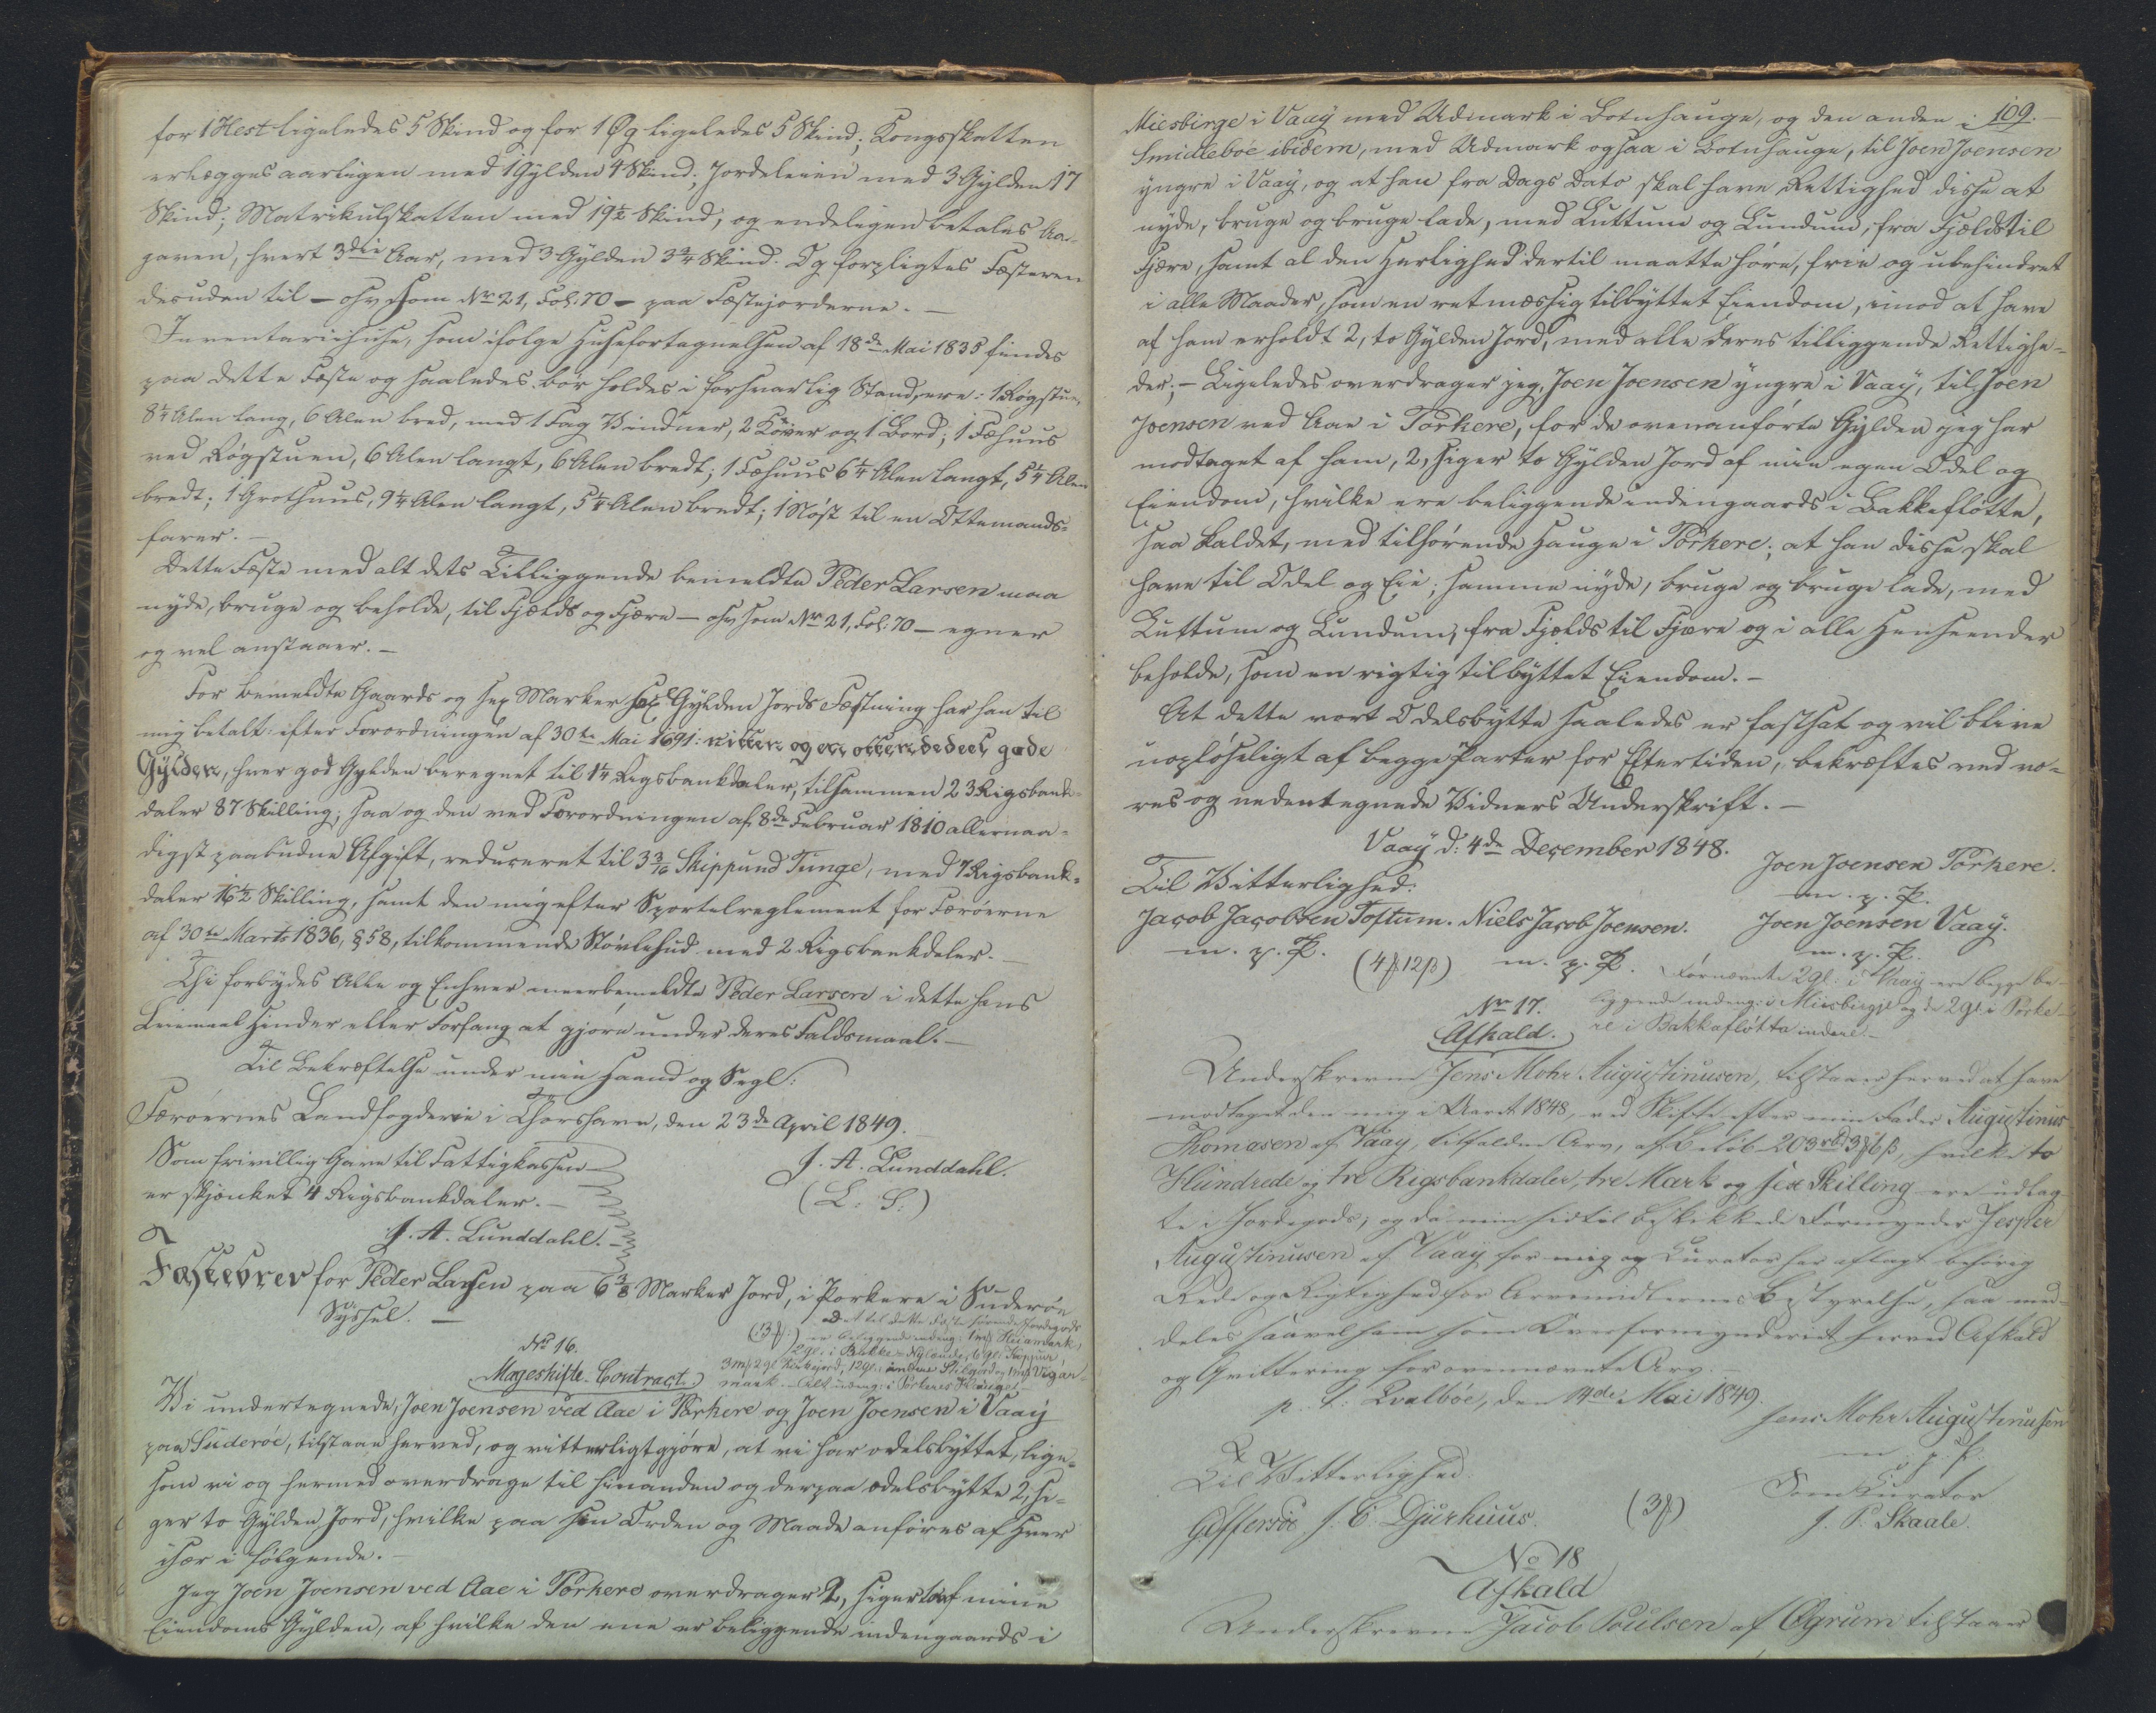 for 1 Hest ligeledes 5 Skind og for 1 Øg ligeledes 5 Skind; Kongsskatten
erlægges aarligen med 1 Gylden 4 Skind; Jordeleien med 3 Gylden 17
Skind; Matrikulskatten med 19½ Skind; og endeligen betales Aa-
gaven, hvert 3die Aar, med 3 Gylden 3¾ Skind. Og forpligtes Fæsteren
desuden til – ohv som No 21, Fol. 70 – paa Fæstejorderne. –
Inventariehuse, som ifølge Husefortegnelsen af 18de Mai 1835 findes
paa dette Fæste og saaledes bør holdes i forsvarlig Stand, ere: 1 Røgstue,
8¼ Alen lang, 6 Alen bred, med 1 Fag Vinduer, 2 Køver og 1 Bord; 1 Fæhuus
ved Røgstuen, 6 Alen langt, 6 Alen bredt; 1 Fæhuus 6¼ Alen langt, 5¼ Alen
bredt; 1 Grothuus, 9¼ Alen langt, 5¼ Alen bredt; 1 Nøst til en Ottemands-
farer. –
Dette Fæste med alt dets Tilliggende bemeldte Peder Larsen maa
nyde, bruge og beholde, til Fjelds og Fjære – ohv som No 21, Fol: 70 – egner
og vel anstaaer. –
For bemeldte Gaards og sex Marker sex Gylden Jords Fæstning har han til
mig betalt: efter Forordningen af 30te Mai 1691: nitten og en ottendedeel gode
Gylden, hver god Gylden beregnet til 1¼ Rigsbankdaler, tilsammen 23 Rigsbank-
daler 87 Skilling; saa og den ved Forordningen af 8de Februar 1810 allernaa-
digst paabudne Afgift, reduceret til 3 3/16 Skippund Tunge, med 7 Rigsbank-
daler 16½ Skilling, samt den mig efter Sportelreglement for Færøerne
af 30te Marts 1836, § 58, tilkommende Støvlehud med 2 Rigsbankdaler. –
Thi forbydes Alle og Enhver meerbemeldte Peder Larsen i dette hans
Leiemaal Hinder eller Forfang at gjøre under deres Faldsmaal. –
Til Bekræftelse under min Haand og Segl:
Færøernes Landfogderie i Thorshavn, den 23de April 1849.
Som frivillig Gave til Fattigkassen
er skjenket 4 Rigsbankdaler. –
J. A. Lunddahl. –
J. A. Lunddahl.
(L: S:)
Fæstebrev for Peder Larsen paa 6 3/8 Marker Jord, i Porkere i Suderøe
Syssel. –
(3 ) Det til dette Fæste hørende Jordegods
er beliggende indeng: 1 mk Heiamark,
2 gl. i Bakke-Nylænde, 6 gl. Kippur,
3 mk 2 gl Kirkejord, 12 gl. Stilgord og 1 mk Vigar-
mark – Alt indeng: i Porkeres Hauge.
No 16.
Mageskifte-Contract.
Vi undertegnede, Joen Joensen ved Aae i Porkere og Joen Joensen i Vaaÿ
paa Suderøe, tilstaae herved, og vitterligtgjøre, at vi har odelsbyttet, lige-
som vi og hermed overdrage til hinanden og derpaa odelsbytte 2, si-
ger to Gylden Jord, hvilke paa sin Orden og Maade anføres af Hver
især i følgende. –
Jeg Joen Joensen ved Aae i Porkere overdrager 2, siger to af mine
Eiendoms Gylden, af hvilke den ene er beliggende indengaards i
109.
Miesbirge i Vaaÿ med Udmark i Botnhauge, og den anden i
Smidlebøe ibidem, med Udmark ogsaa i Botnhauge, til Joen Joensen
yngre i Vaaÿ, og at han fra Dags Dato skal have Rettighed disse at
nyde, bruge og bruge lade, med Luttum og Lundum, fra Fjeld til
Fjære, samt al den Herlighed dertil maatte høre, frie og ubehindret
i alle Maader, som en retmæssig tilbyttet Eiendom, imod at have
af ham erholdt 2, to Gylden Jord, med alle deres tilliggende Rettighe-
der. – Ligeledes overdrager jeg, Joen Joensen yngre i Vaaÿ, til Joen
Joensen ved Aae i Porkere, for de ovenanførte Gylden jeg har
modtaget af ham, 2, siger to Gylden Jord af min egen Odel og
Eiendom, hvilke ere beliggende indengaards i Bakkefløtte,
saa kaldet, med tilhørende Hauge i Porkere; at han disse skal
have til Odel og Eie; samme nyde, bruge og bruge lade, med
Luttum og Lundum, fra Fjelds til Fjære og i alle Henseender
beholde, som en rigtig tilbyttet Eiendom. –
At dette vort Odelsbytte saaledes er fastsat og vil blive
uopløseligt af begge Parter for Eftertiden, bekræftes ved vo-
res og nedentegnede Vidners Underskrift. –
Vaaÿ d: 4de December 1848.
Til Vitterlighed: Joen Joensen Porkere.
m. p. P.
Jacob Jacobsen Toftum. Niels Jacob Joensen. Joen Joensen Vaaÿ.
m. p. P. (4 12ß) m. p. P. m. p. P.
Førnævnte 2 gl. i Vaaÿ ere begge be-
liggende indeng: i Miesbirgje og de 2 gl. i Porke-
re i Bakkafløtta indere. –
No 17.
Afkald.
Underskrevne Jens Mohr Augustinusen, tilstaaer herved at have
modtaget den mig i Aaret 1848, ved Skifte efter min Fader Augustinus
Thomasen af Vaaÿ, tilfaldne Arv, af Beløb 203 rbd 3 6 ß, hvilke to
Hundrede og tre Rigsbankdaler, tre Mark og sex Skilling ere udlag-
te i Jordegods; og da min hidtil beskikkede Formynder Jesper
Augustinusen af Vaaÿ for mig og Curator har aflagt behørig
Rede og Rigtighed for Arvemidlernes Bestyrelse, saa med-
deles saavel ham som Overformynderiet herved Afkald
og Qvittering for ovennævnte Arv.
p. t. Qvalbøe, den 14de Mai 1849.
Jens Mohr Augustinusen
m. p. P.
Til Vitterlighed: Som Curator
J. C. Djurhuus. (3 ) J. P. Skaale.
No 18
Afkald
Underskrevne Jacob Poulsen af Øgrum tilstaaer